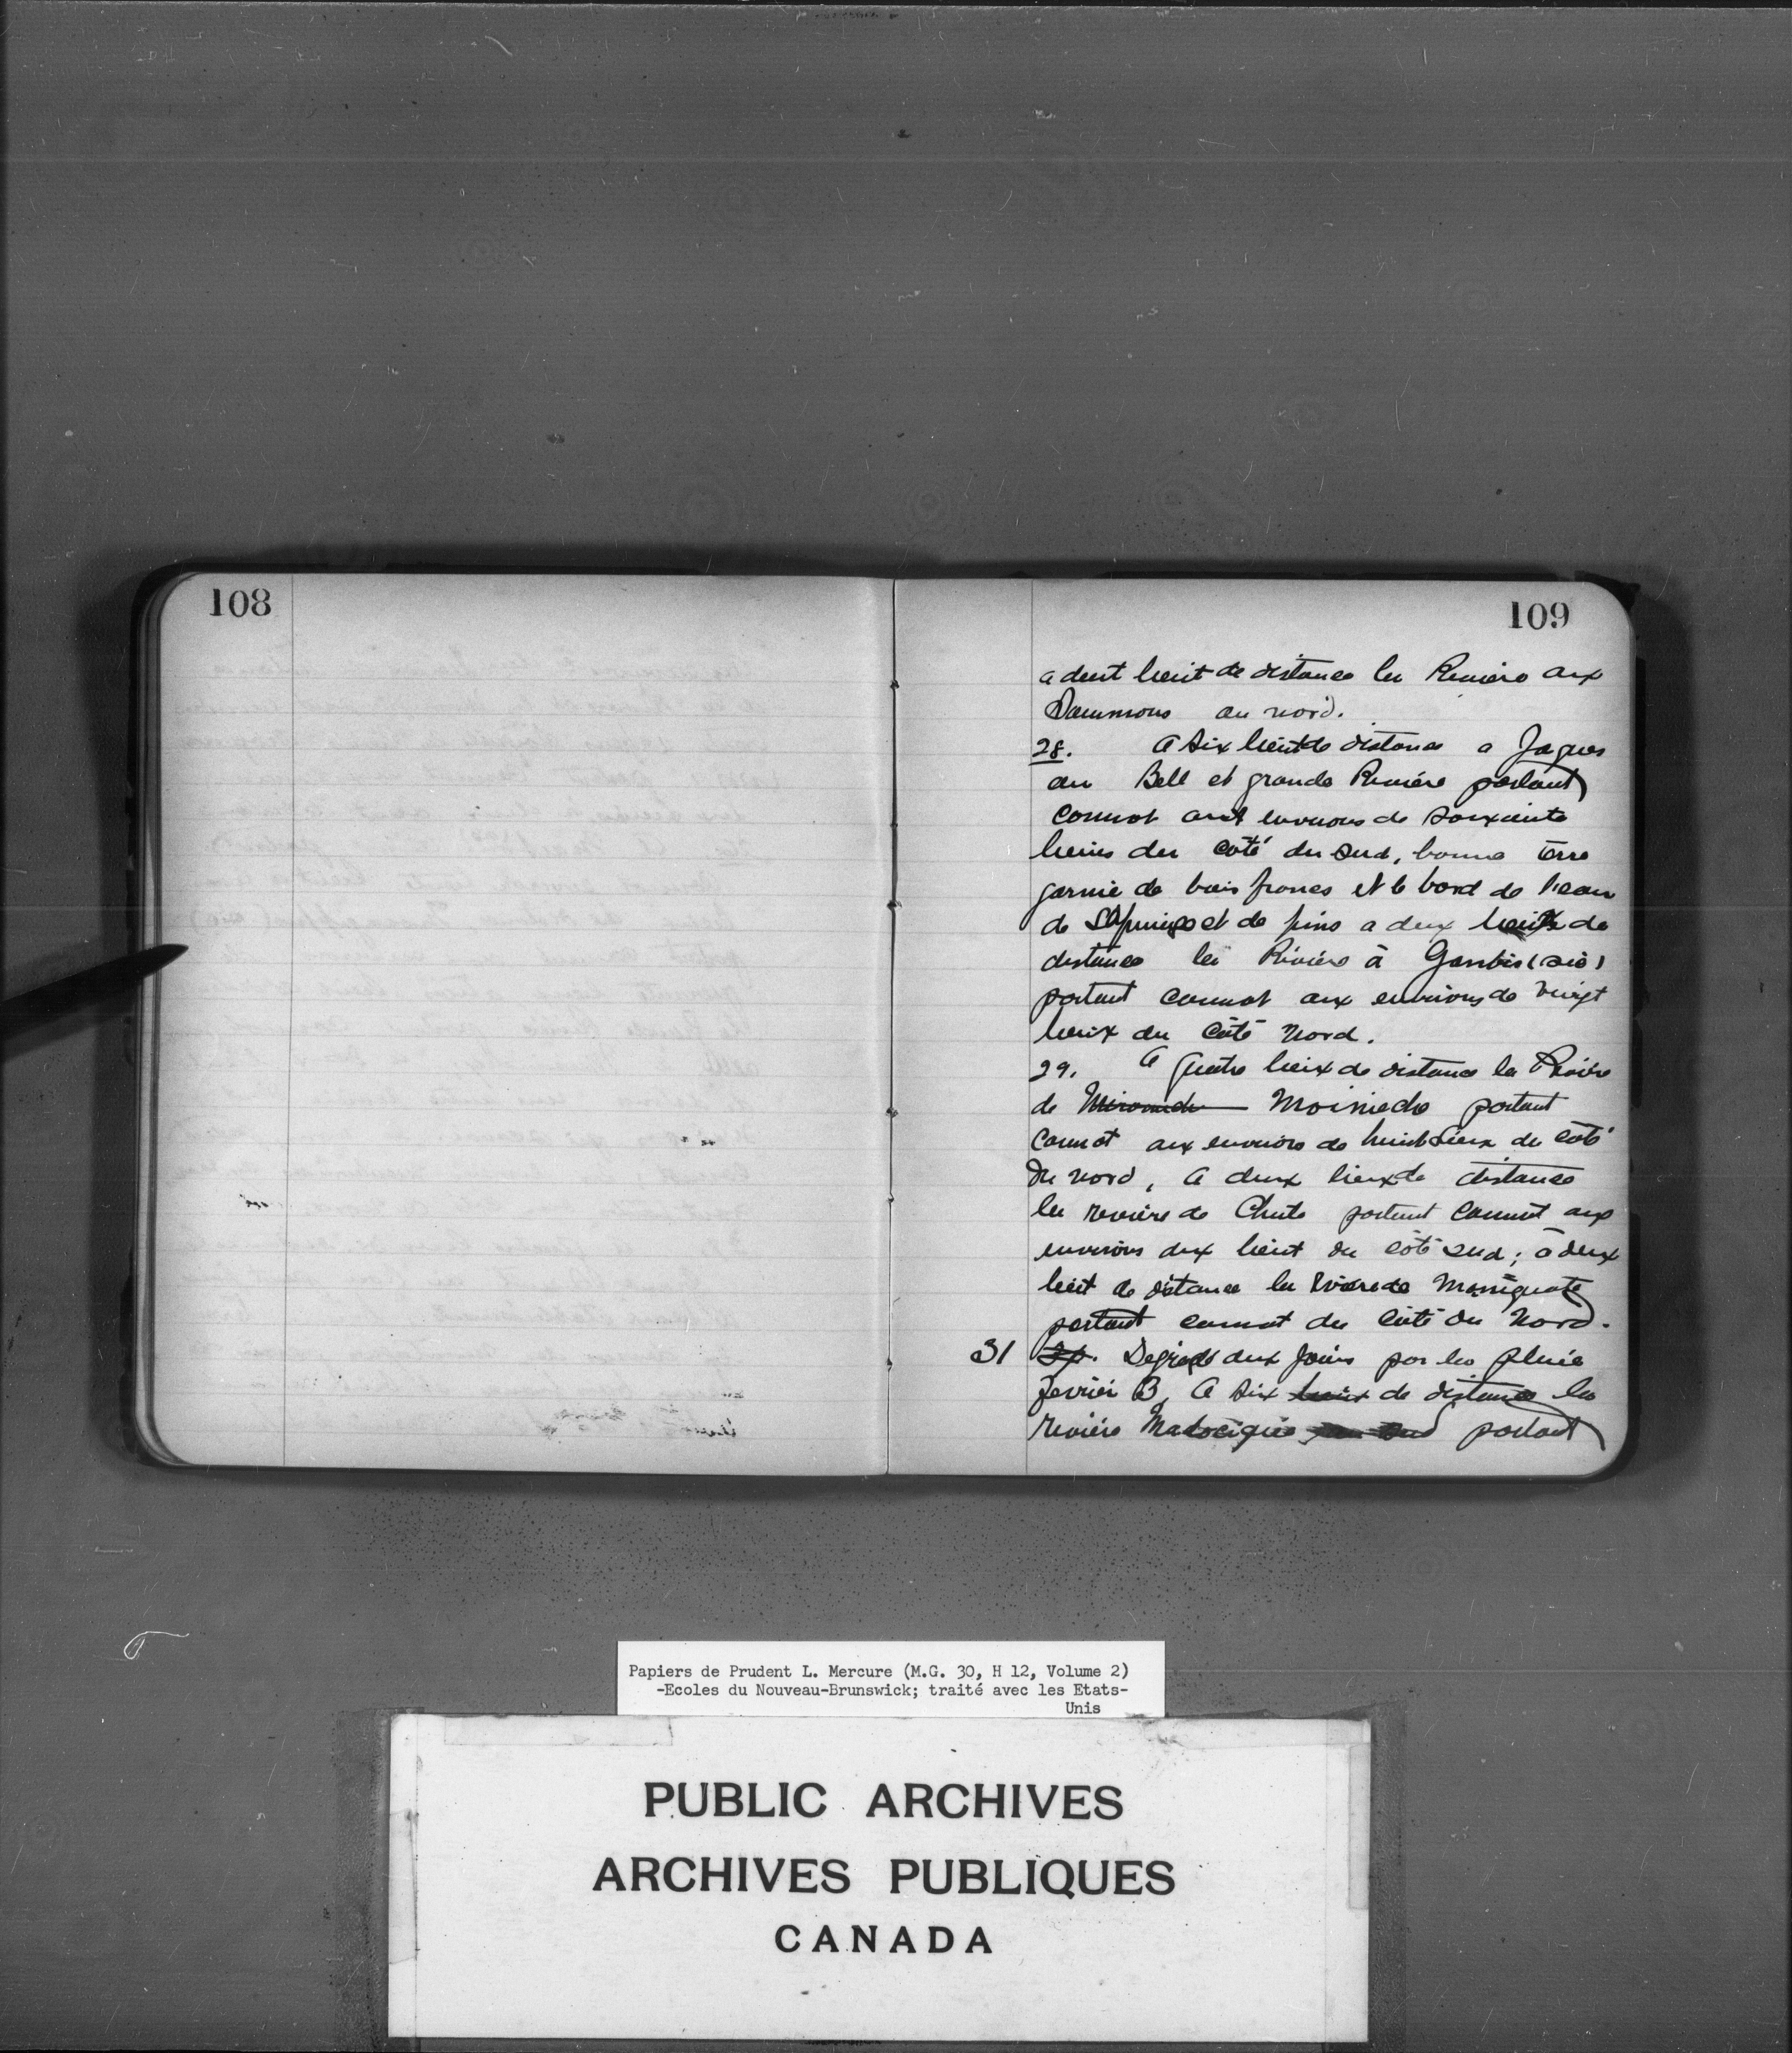 108
109
a deut lieut de distance la Riviere aux
Saumons au nord.
28. A six lieut de distance a Jaques
au Bell et grande Riviére portant
connot aux environs de soixiente
lieus du coté du sud, bonne terre
garnie de bois francs et le bord de l'eau
de Sapinise et de pins a deux lieux de
distance la Riviére à Gambis (sic)
portant connot aux environs de vingt
lieux du Côté Nord.
29. A quatre lieux de distance la Riviere
de Moiniede portant
Connot aux environs de huit Lieux du coté
du nord, a deux lieux de distance
la reviére de Chute portant Connot aux
environs deux lieut du côté sud; à deux
lieut de distance la Riviere de Moniguate
portant connot du Côté du Nord.
31 30. Degradé deux Jours par la pluie
fevrier 3, A six lieux de distance la
reviére Madocique portant
Papiers de Prudent L. Mercure (M.G. 30, H 12, Volume 2)
-Ecoles du Nouveau-Brunswick; traité avec les Etats-
Unis
PUBLIC ARCHIVES
ARCHIVES PUBLIQUES
CANADA